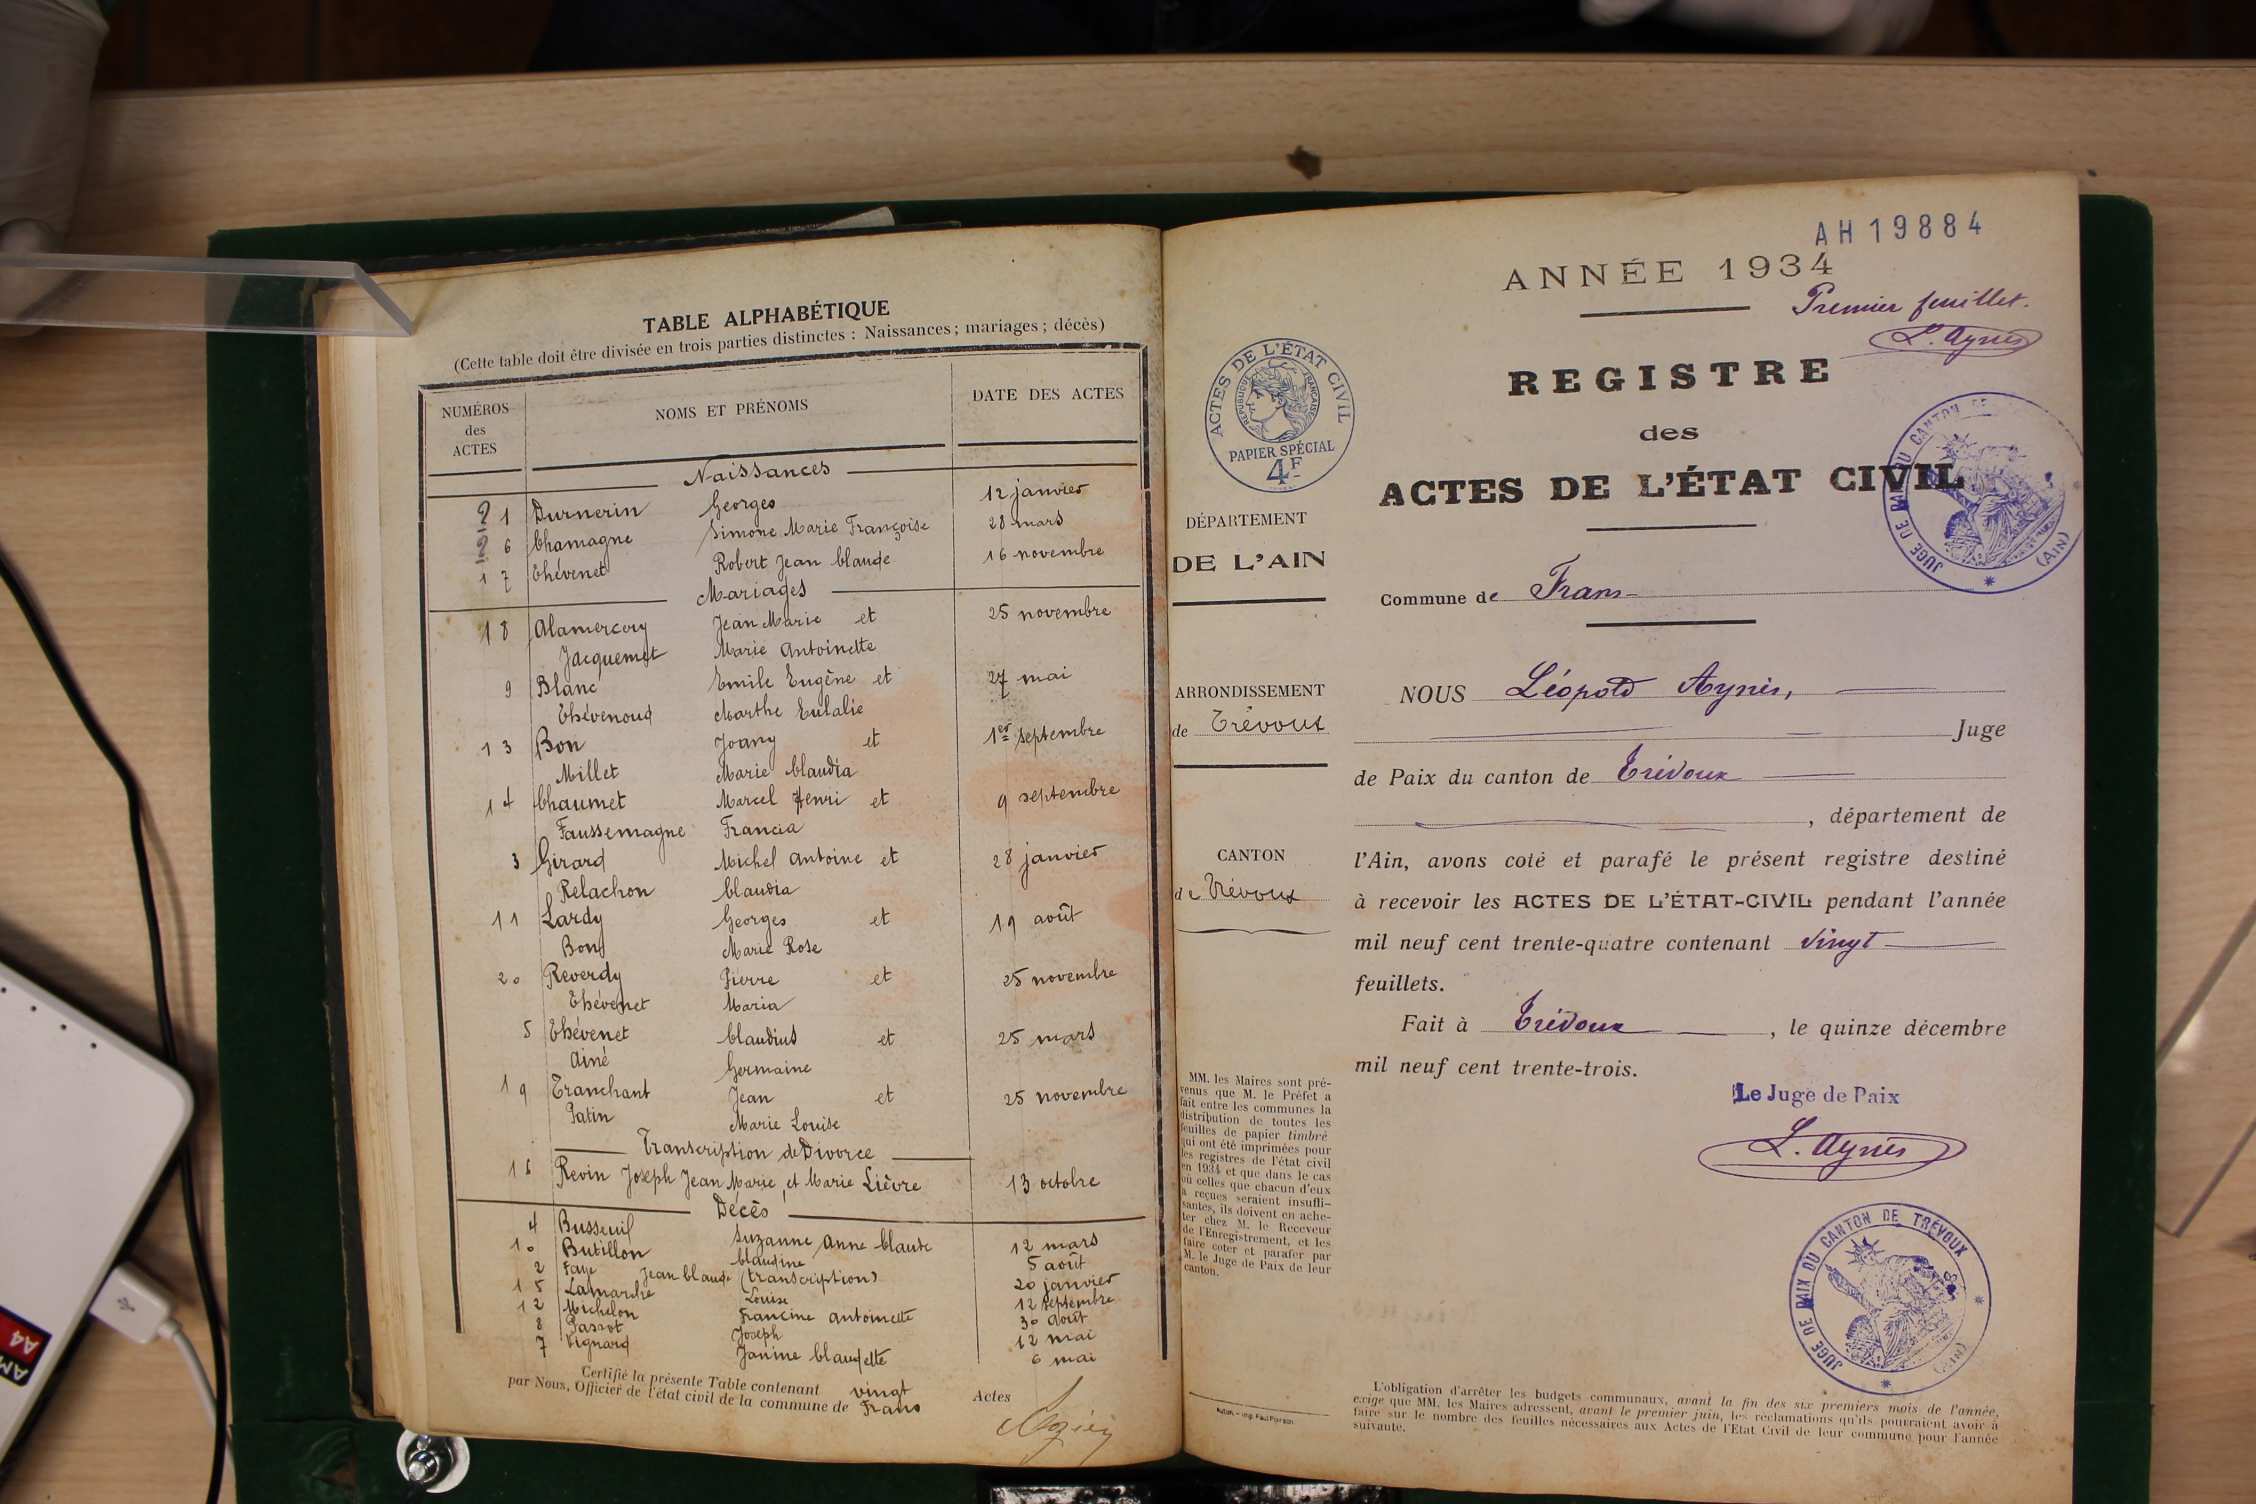 TABLE ALPHABÉTIQUE
(Cette table doit être divisée en trois parties distinctes : Naissances ; mariages ; décès)
NUMÉROS des ACTES NOMS ET PRÉNOMS DATE DES ACTES
Naissances
1 Durnerin Georges 12 janvier
6 Chamagne Simone Marie Françoise 28 mars
17 Thévenet Robert Jean Claude 16 novembre
Mariages
18 Alamercery Jean Marie et 25 novembre
Jacquemet Marie Antoinette
9 Blanc Emile Eugène et 27 mai
Thévenoud Marthe Eulalie
13 Bon Joany et 1er septembre
Millet Marie Claudia
14 Chaumet Marcel Henri et 9 septembre
Faussemagne Francia
3 Girard Michel Antoine et 28 janvier
Relachon Claudia
11 Lardy Georges et 19 août
Bon Marie Rose
20 Reverdy Pierre et 25 novembre
Thévenet Maria
5 Thévenet Claudius et 25 mars
Ainé Germaine
19 Tranchant Jean et 25 novembre
Patin Marie Louise
Transcription de Divorce
16 Revin Joseph Jean Marie et Marie Lièvre 13 octobre
Décès
4 Busseuil Suzanne Anne Claude 12 mars
10 Butillon Claudine 5 août
2 Faye Jean Claude (transcription) 20 janvier
15 Lamarche Louise 12 septembre
12 Michelon Francine Antoinette 30 août
8 Passot Joseph 12 mai
7 Vignard Janine Claudette 6 mai
Certifié la présente Table contenant vingt Actes
par Nous, Officier de l'état civil de la commune de Frans
AH 19884
ANNÉE 1934
Premier feuillet.
L. Aynès
REGISTRE
des
ACTES DE L'ÉTAT CIVIL
JUGE DE PAIX DU CANTON DE
(AIN)
Commune de Frans
NOUS Léopold Aynès,
Juge
de Paix du canton de Trévoux
, département de
l'Ain, avons coté et parafé le présent registre destiné
à recevoir les ACTES DE L'ÉTAT-CIVIL pendant l'année
mil neuf cent trente-quatre contenant vingt
feuillets.
Fait à Trévoux , le quinze décembre
mil neuf cent trente-trois.
Le Juge de Paix
L. Aynès
JUGE DE PAIX DU CANTON DE TRÉVOUX
(AIN)
L'obligation d'arrêter les budgets communaux, avant la fin des six premiers mois de l'année,
exige que MM. les Maires adressent, avant le premier juin, les réclamations qu'ils pourraient avoir à
faire sur le nombre des feuilles nécessaires aux Actes de l'État Civil de leur commune pour l'année
suivante.
ACTES DE L'ÉTAT CIVIL
RÉPUBLIQUE FRANÇAISE
PAPIER SPÉCIAL
4F
DÉPARTEMENT
DE L'AIN
ARRONDISSEMENT
de Trévoux
CANTON
de Trévoux
MM. les Maires sont pré-
venus que M. le Préfet a
fait entre les communes la
distribution de toutes les
feuilles de papier timbré
qui ont été imprimées pour
les registres de l'état civil
en 1934 et que dans le cas
où celles que chacun d'eux
a reçues seraient insuffi-
santes, ils doivent en ache-
ter chez M. le Receveur
de l'Enregistrement, et les
faire coter et parafer par
M. le Juge de Paix de leur
canton.
A4